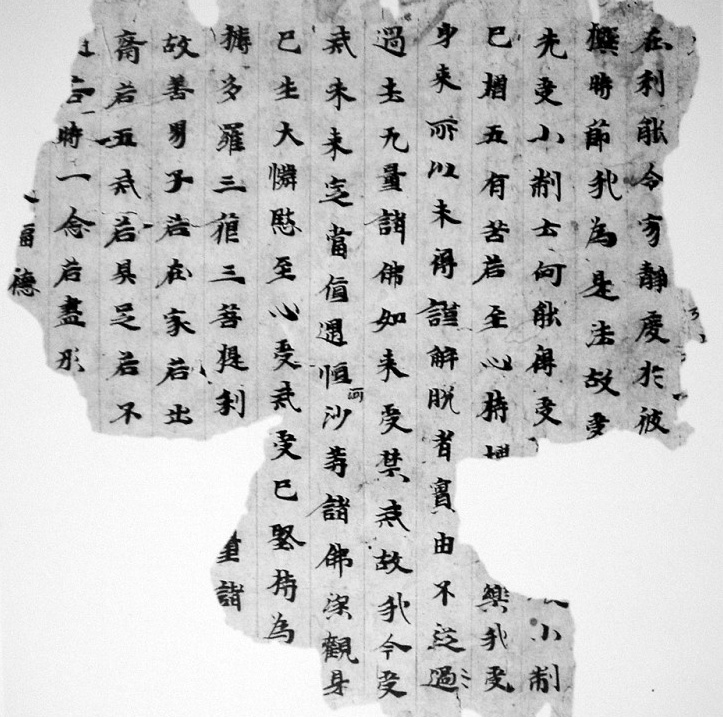 利能令寂靜度於彼
時節我為是法故受
先受小制云何能得受小制
已增五有苦若至心持樂我受
身來所以未得護解脫者實由不從過
過去无量諸佛如來受禁戒故我今受
戒未來定當值遇恒河沙等諸佛深觀身
已生大憐愍至心受戒受已堅持為
耨多羅三藐三菩提利量諸
故善男子若在家若出
齋若五戒若具足若不
時一念若盡形
福德